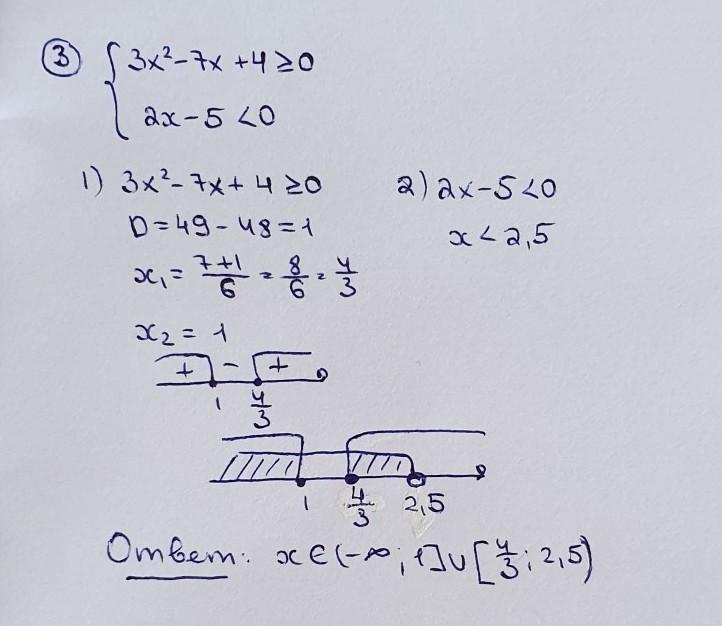 ③ { 3x²-7x+4≥0
2x-5<0
1) 3x²-7x+4≥0
D=49-48=1
x₁=7+1/6=8/6=4/3
x₂=1
2) 2x-5<0
x<2,5
+ - +
1 4/3
1 4/3 2,5
Ответ: x∈(-∞;1]∪[4/3;2,5)